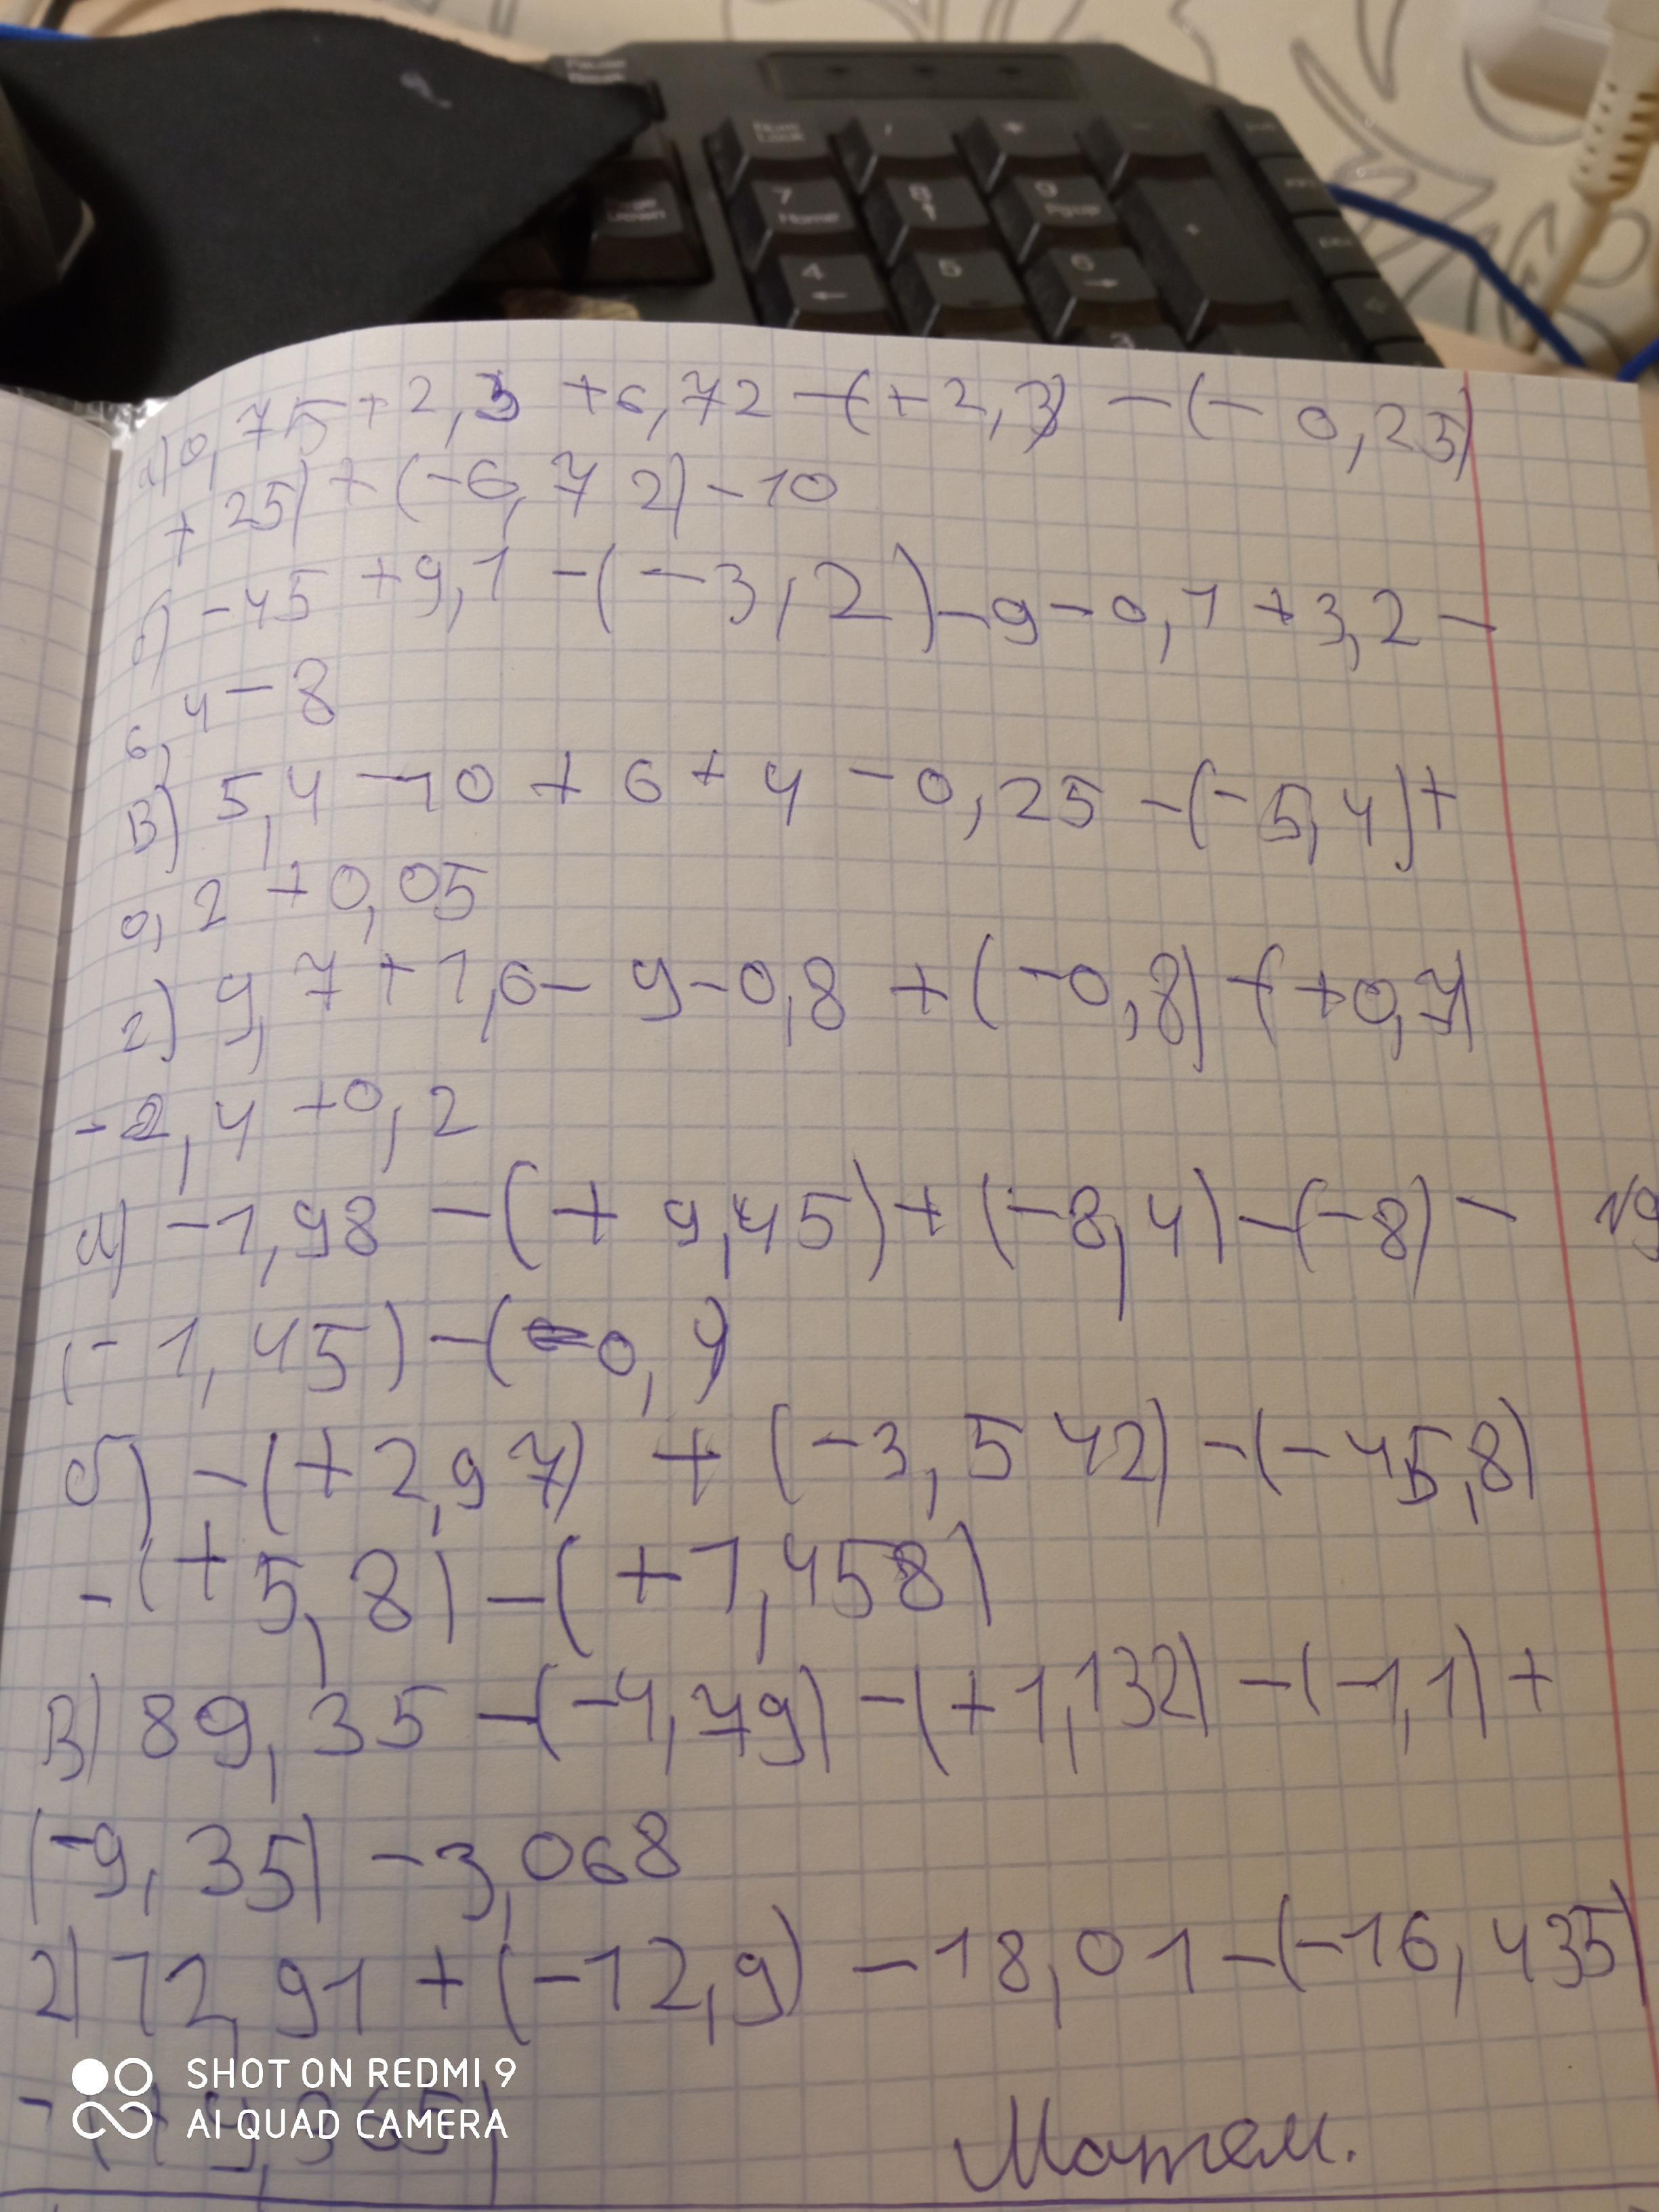 Pause
Break
Num
Lock
/
*
-
Page
Down
7
Home
8
9
PgUp
+
4
5
6
3
а) 0,75 + 2,3 + 6,72 - (+2,3) - (-0,25)
+ 25) + (-6,72) - 10
б) -45 + 9,1 - (-3,2) - 9 - 0,1 + 3,2 -
6,4 - 8
в) 5,4 - 10 + 6 + 4 - 0,25 - (-5,4) +
0,2 + 0,05
г) 9,7 + 1,6 - 9 - 0,8 + (-0,8) - (+0,7)
-2,4 + 0,2
а) -1,98 - (+9,45) + (-8,4) - (-8) -
(-1,45) - (-0,4)
б) - (+2,97) + (-3,542) - (-45,8)
- (+5,8) - (+1,458)
в) 89,35 - (-4,79) - (+1,132) - (-1,1) +
(-9,35) - 3,068
г) 72,91 + (-12,9) - 18,01 - (-16,435)
SHOT ON REDMI 9
AI QUAD CAMERA
Матем.